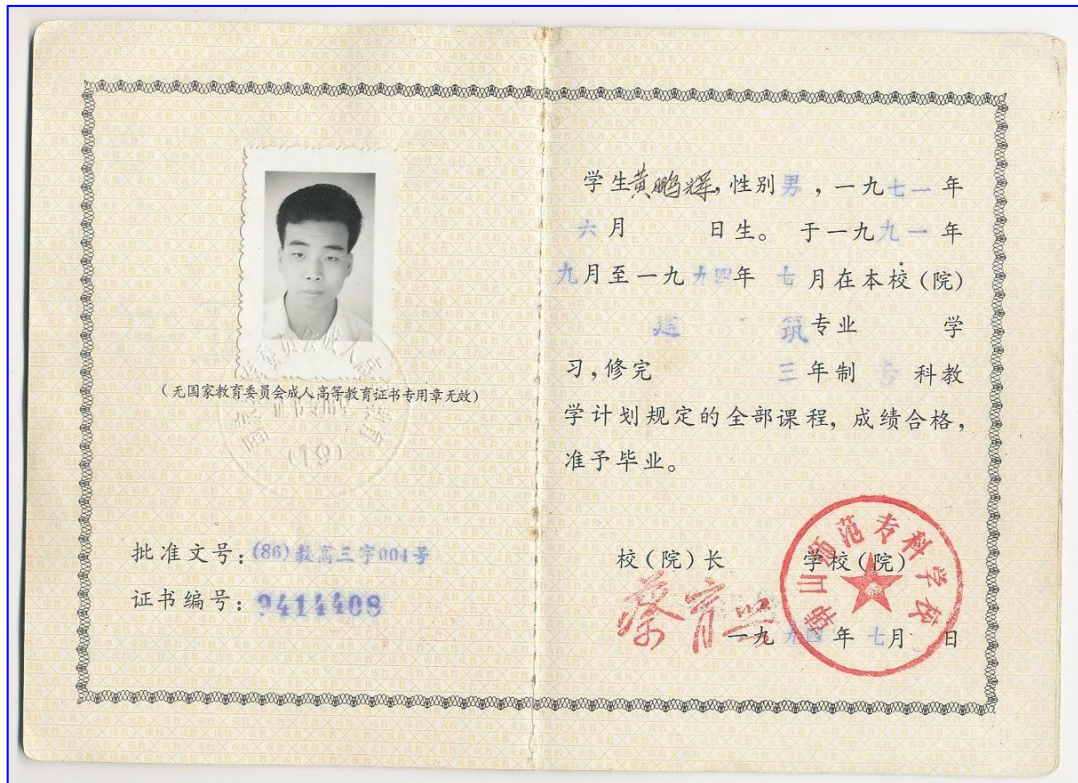 (无国家教育委员会成人高等教育证书专用章无效)
(19)
批准文号:(86)教高三字004号
证书编号:9414408
学生黄鹏辉,性别男,一九七一年
六月 日生。于一九九一年
九月至一九九四年 七月在本校(院)
建 筑专业 学
习,修完 三年制 专 科教
学计划规定的全部课程,成绩合格,
准予毕业。
校(院)长 学校(院)
蔡育兴
韩山师范专科学校
一九九四年 七月 日